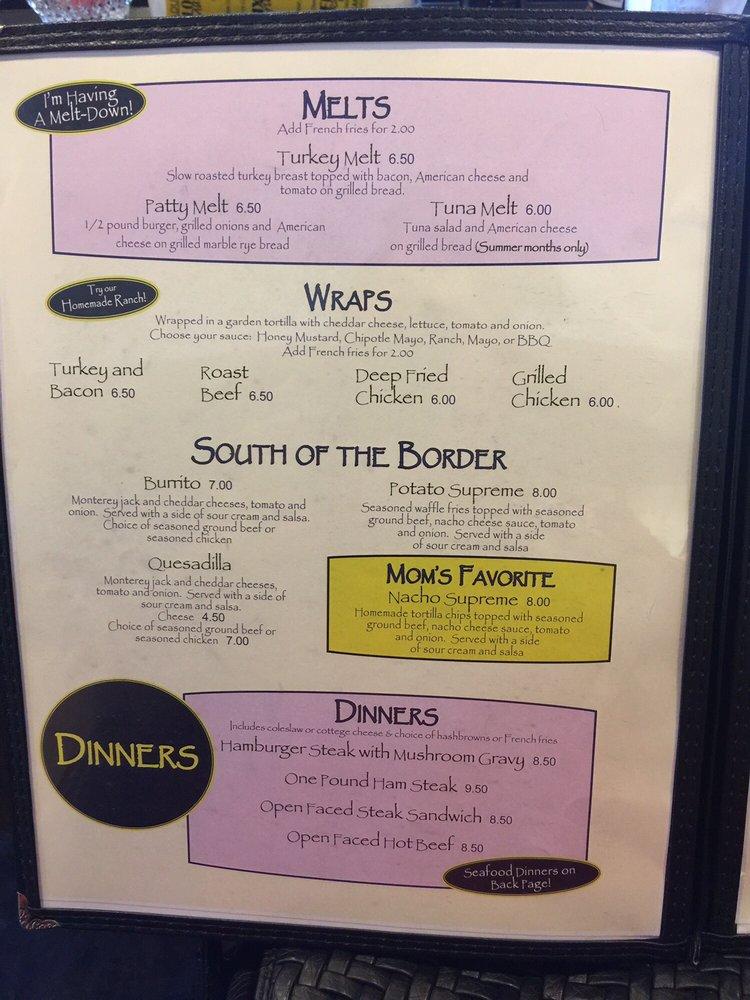 I'm Having
A Melt-Down!
MELTS
Add French fries for 2.00
Turkey Melt 6.50
Slow roasted turkey breast topped with bacon, American cheese and
tomato on grilled bread.
Patty Melt 6.50
1/2 pound burger, grilled onions and American
cheese on grilled marble rye bread
Tuna Melt 6.00
Tuna salad and American cheese
on grilled bread (Summer months only)
Try our
Homemade Ranch!
WRAPS
Wrapped in a garden tortilla with cheddar cheese, lettuce, tomato and onion.
Choose your sauce: Honey Mustard, Chipotle Mayo, Ranch, Mayo, or BBQ
Add French fries for 2.00
Turkey and
Bacon 6.50
Roast
Beef 6.50
Deep Fried
Chicken 6.00
Grilled
Chicken 6.00.
SOUTH OF THE BORDER
Burrito 7.00
Monterey jack and cheddar cheeses, tomato and
onion. Served with a side of sour cream and salsa.
Choice of seasoned ground beef or
seasoned chicken
Quesadilla
Monterey jack and cheddar cheeses,
tomato and onion. Served with a side of
sour cream and salsa.
Cheese 4.50
Choice of seasoned ground beef or
seasoned chicken 7.00
Potato Supreme 8.00
Seasoned waffle fries topped with seasoned
ground beef, nacho cheese sauce, tomato
and onion. Served with a side
of sour cream and salsa
MOM'S FAVORITE
Nacho Supreme 8.00
Homemade tortilla chips topped with seasoned
ground beef, nacho cheese sauce, tomato
and onion. Served with a side
of sour cream and salsa
DINNERS
DINNERS
Includes coleslaw or cottege cheese & choice of hashbrowns or French fries
Hamburger Steak with Mushroom Gravy 8.50
One Pound Ham Steak 9.50
Open Faced Steak Sandwich 8.50
Open Faced Hot Beef 8.50
Seafood Dinners on
Back Page!